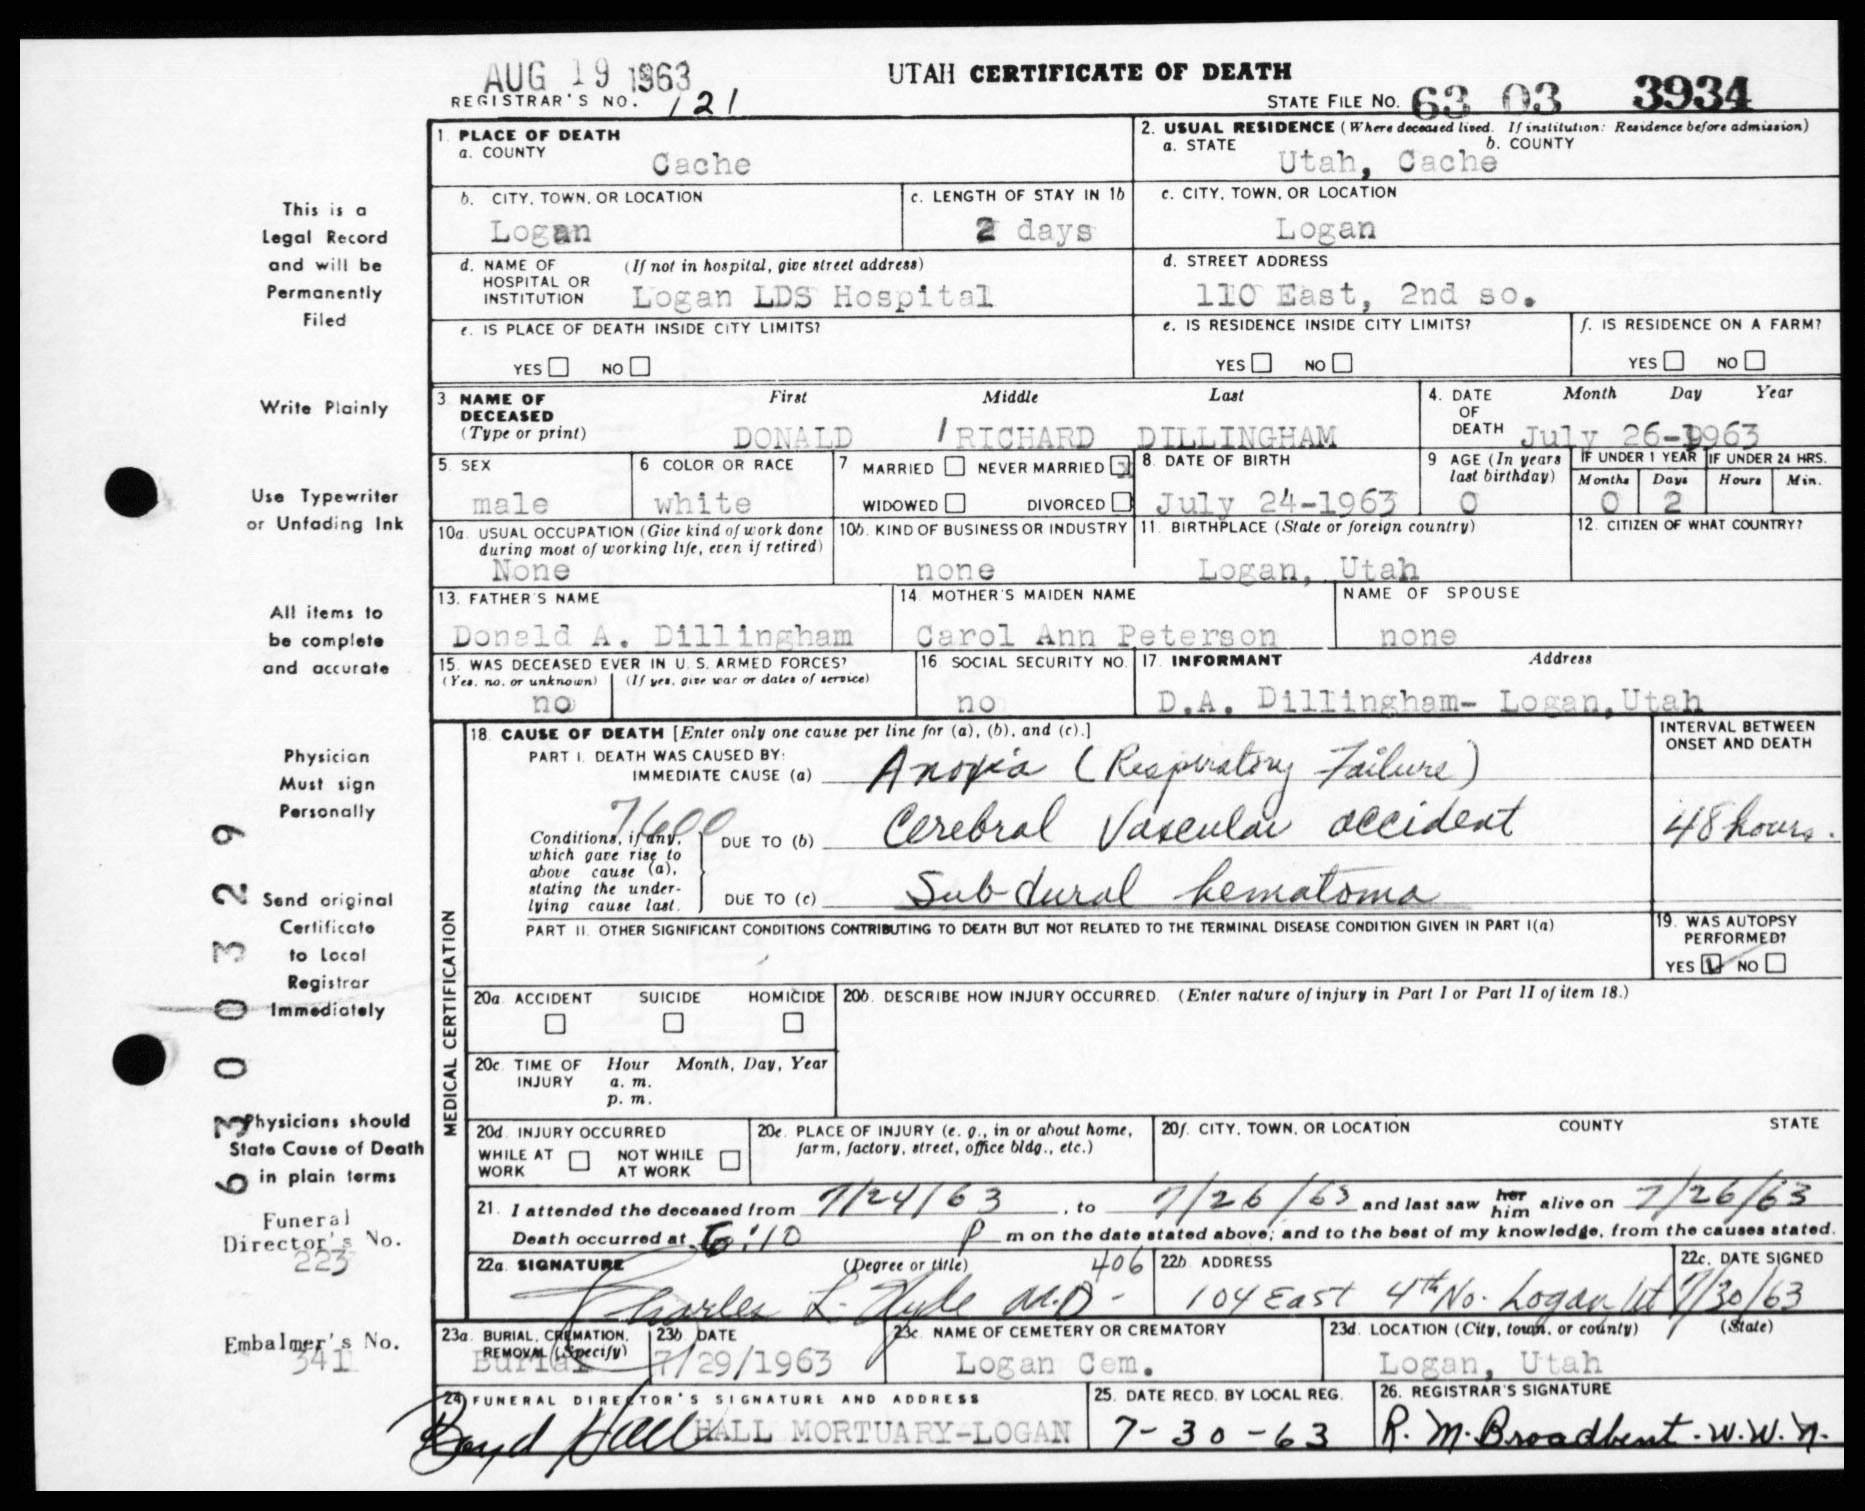 AUG 19 1963
UTAH CERTIFICATE OF DEATH
REGISTRAR'S NO. 121
STATE FILE NO. 63 03 3934
1. PLACE OF DEATH
a. COUNTY
Cache
2. USUAL RESIDENCE (Where deceased lived. If institution: Residence before admission)
a. STATE b. COUNTY
Utah, Cache
b. CITY, TOWN, OR LOCATION
Logan
c. LENGTH OF STAY IN 1b
2 days
c. CITY, TOWN, OR LOCATION
Logan
d. NAME OF HOSPITAL OR INSTITUTION (If not in hospital, give street address)
Logan LDS Hospital
d. STREET ADDRESS
110 East, 2nd so.
e. IS PLACE OF DEATH INSIDE CITY LIMITS?
YES NO
e. IS RESIDENCE INSIDE CITY LIMITS?
YES NO
f. IS RESIDENCE ON A FARM?
YES NO
3. NAME OF DECEASED (Type or print)
First Middle Last
DONALD RICHARD DILLINGHAM
4. DATE OF DEATH Month Day Year
July 26-1963
5. SEX
male
6 COLOR OR RACE
white
7 MARRIED NEVER MARRIED
WIDOWED DIVORCED
8. DATE OF BIRTH
July 24-1963
9 AGE (In years last birthday)
0
IF UNDER 1 YEAR IF UNDER 24 HRS.
Months Days Hours Min.
0 2
10a. USUAL OCCUPATION (Give kind of work done during most of working life, even if retired)
None
10b. KIND OF BUSINESS OR INDUSTRY
none
11. BIRTHPLACE (State or foreign country)
Logan, Utah
12. CITIZEN OF WHAT COUNTRY?
13. FATHER'S NAME
Donald A. Dillingham
14. MOTHER'S MAIDEN NAME
Carol Ann Peterson
NAME OF SPOUSE
none
15. WAS DECEASED EVER IN U. S. ARMED FORCES?
(Yes, no, or unknown) (If yes, give war or dates of service)
no
16. SOCIAL SECURITY NO.
no
17. INFORMANT Address
D.A. Dillingham- Logan,Utah
MEDICAL CERTIFICATION
18. CAUSE OF DEATH [Enter only one cause per line for (a), (b), and (c).]
INTERVAL BETWEEN ONSET AND DEATH
PART I. DEATH WAS CAUSED BY:
IMMEDIATE CAUSE (a) Anoxia (Respiratory Failure)
7600
Conditions, if any, which gave rise to above cause (a), stating the underlying cause last.
DUE TO (b) Cerebral Vascular accident 48 hours.
DUE TO (c) Sub-dural hematoma
PART II. OTHER SIGNIFICANT CONDITIONS CONTRIBUTING TO DEATH BUT NOT RELATED TO THE TERMINAL DISEASE CONDITION GIVEN IN PART I(a)
19. WAS AUTOPSY PERFORMED?
YES NO
20a. ACCIDENT SUICIDE HOMICIDE
20b. DESCRIBE HOW INJURY OCCURRED. (Enter nature of injury in Part I or Part II of item 18.)
20c. TIME OF INJURY Hour Month, Day, Year
a. m.
p. m.
20d. INJURY OCCURRED
WHILE AT WORK NOT WHILE AT WORK
20e. PLACE OF INJURY (e. g., in or about home, farm, factory, street, office bldg., etc.)
20f. CITY, TOWN, OR LOCATION COUNTY STATE
21. I attended the deceased from 7/24/63, to 7/26/63 and last saw her him alive on 7/26/63
Death occurred at 6:10 P m on the date stated above; and to the best of my knowledge, from the causes stated.
22a. SIGNATURE (Degree or title) 406
Charles L. Hyde M.D.
22b. ADDRESS
104 East 4th No. Logan Ut
22c. DATE SIGNED
7/30/63
23a. BURIAL, CREMATION, REMOVAL (Specify)
Burial
23b. DATE
7/29/1963
23c. NAME OF CEMETERY OR CREMATORY
Logan Cem.
23d. LOCATION (City, town, or county) (State)
Logan, Utah
24. FUNERAL DIRECTOR'S SIGNATURE AND ADDRESS
Boyd Hall HALL MORTUARY-LOGAN
25. DATE RECD. BY LOCAL REG.
7-30-63
26. REGISTRAR'S SIGNATURE
R. M. Broadbent. W.W.N.
This is a
Legal Record
and will be
Permanently
Filed
Write Plainly
Use Typewriter
or Unfading Ink
All items to
be complete
and accurate
Physician
Must sign
Personally
Send original
Certificate
to Local
Registrar
Immediately
Physicians should
State Cause of Death
in plain terms
Funeral
Director's No.
223
Embalmer's No.
341
63 0 0 3 2 9